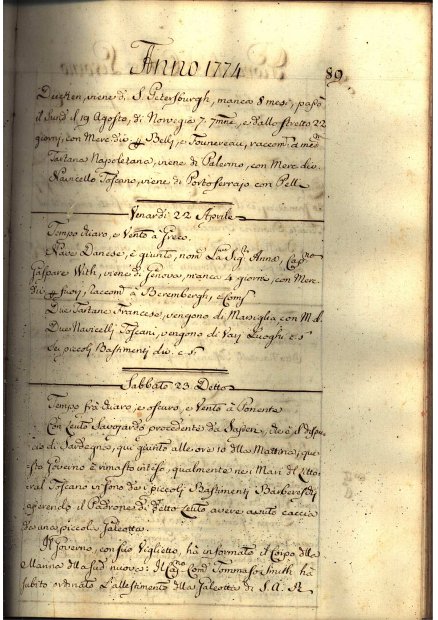 Anno 1774
89
viene di S. Petersburgh, manca 8 mesi, passò
il Sund il 19 Agosto, di Norvegia 7. 7mne, e dallo stretto 22
giorni, con Merc: div: p Belli, e Founereau, raccom: a med:
Tartana Napoletana, viene di Palermo, con Merc: div:
Navicello Toscano, viene di Portoferrajo con Pell:
Venardì 22 Aprile
Tempo chiaro, e Vento à Greco.
Nave Danese, è giunto, nom: La Sig: Anna, Cap:no
Gaspare With, viene di Genova, manca 4 giorni, con Merc:
div: p raccom: à Berembergh, e Comp:
Due Tartane Francese, vengono di Marsiglia, con M. d.
Due Navicelli Toscani, vengono di Varj Luoghi c. s.
Sei piccoli Bastimenti div: c. s.
Sabbato 23 Detto
Tempo frà chiaro, e oscuro, e Vento à Ponente
Con Leuto Savojardo procedente da
di Sardegna, qui giunto alle ore 10 della Mattina, que
sto Governo è rimasto inteso, qualmente nei Mari del Litto
ral Toscano vi sono dei piccoli Bastimenti Barbereschi
avendo il Padrone di detto Leuto avere avuto caccia
da una piccola Galeotta.
Il Governo, con suo Viglietto, ha informato il Corpo della
Marina della sud: nuova: Il Cap:no Com: Tommaso Smith ha
subito ordinato l'allestimento della Galeotta di S. A. R.